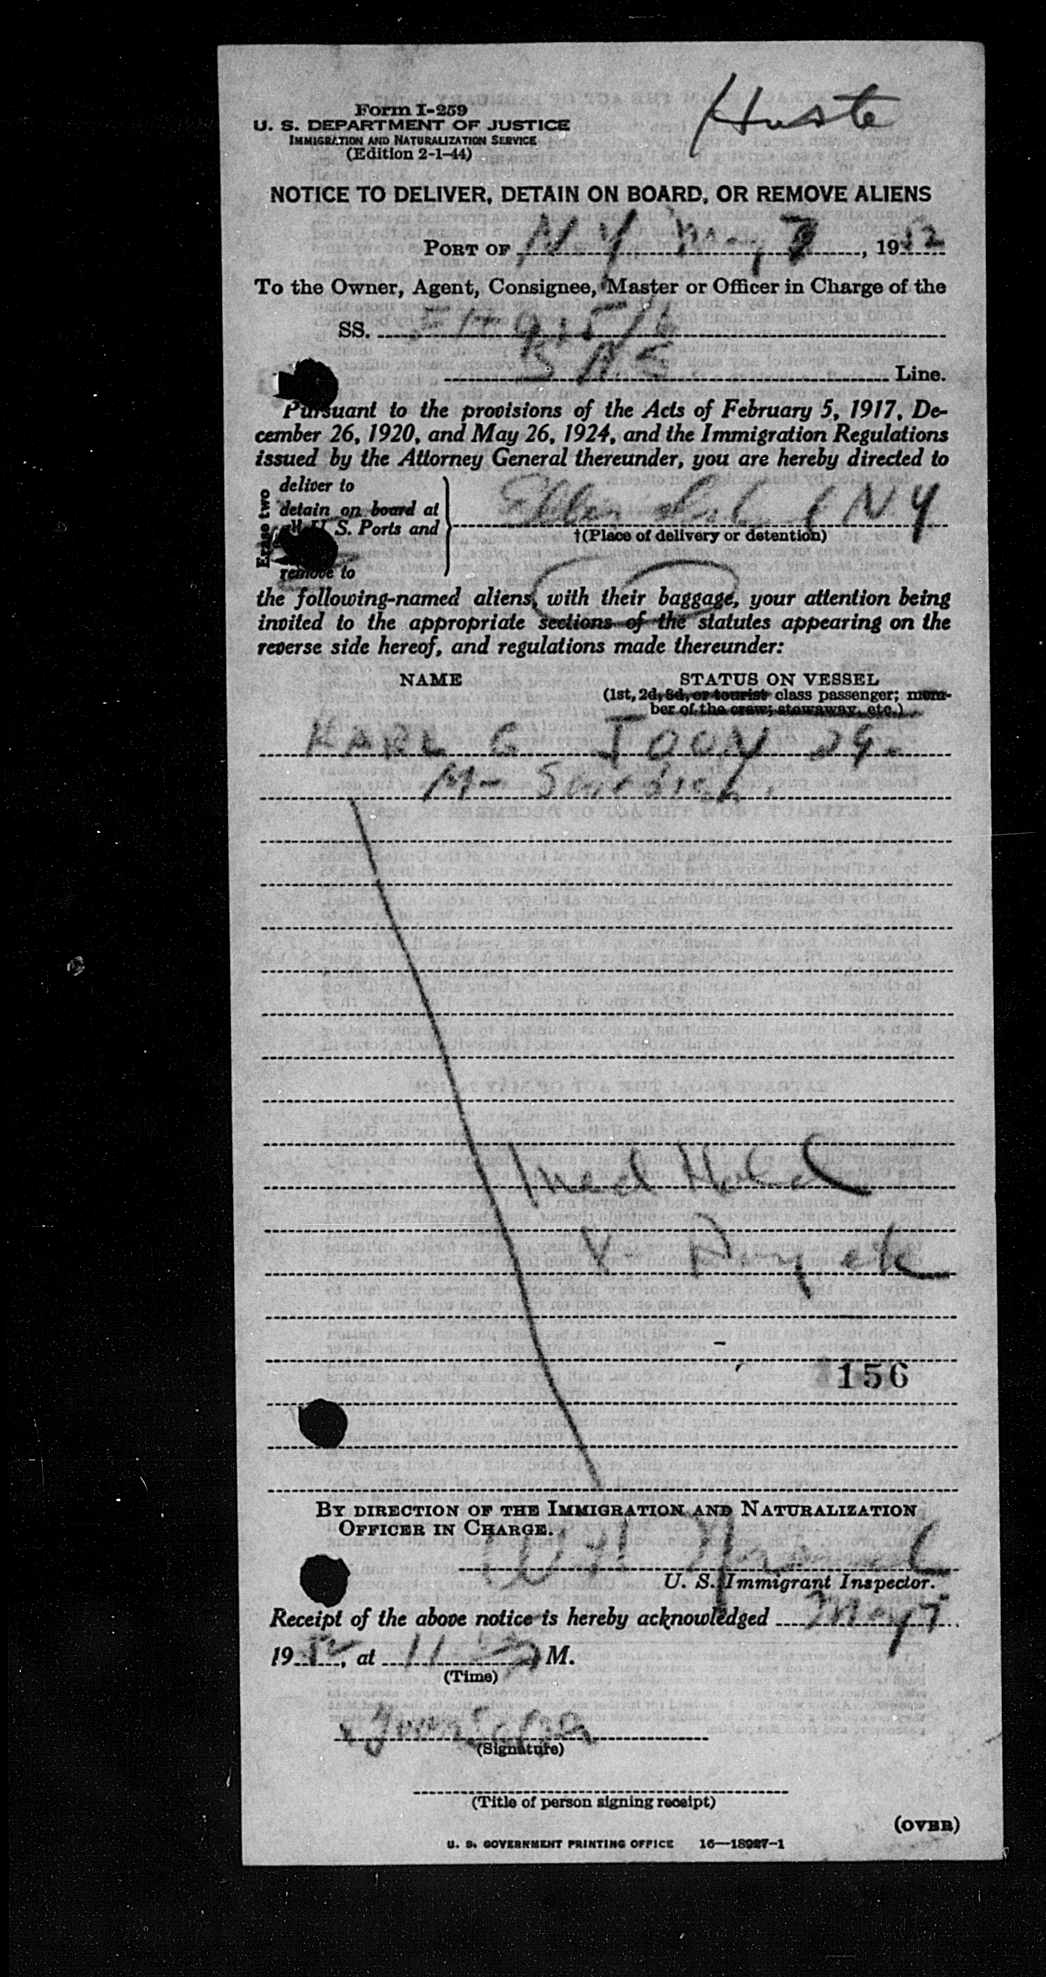 Huste
Form I-259
U. S. DEPARTMENT OF JUSTICE
IMMIGRATION AND NATURALIZATION SERVICE
(Edition 2-1-44)
NOTICE TO DELIVER, DETAIN ON BOARD, OR REMOVE ALIENS
PORT OF N Y May 7, 1952
To the Owner, Agent, Consignee, Master or Officer in Charge of the
SS. Flt 915/6
S A S Line.
Pursuant to the provisions of the Acts of February 5, 1917, De-
cember 26, 1920, and May 26, 1924, and the Immigration Regulations
issued by the Attorney General thereunder, you are hereby directed to
Erase two
deliver to
detain on board at
U. S. Ports and
remove to
Ellis Isl NY
†(Place of delivery or detention)
the following-named aliens, with their baggage, your attention being
invited to the appropriate sections of the statutes appearing on the
reverse side hereof, and regulations made thereunder:
NAME STATUS ON VESSEL
(1st, 2d, 3d, or tourist class passenger; mem-
ber of the crew; stowaway, etc.)
KARL G JOON 29.
M- Swedish.
Med Hold
X-
156
BY DIRECTION OF THE IMMIGRATION AND NATURALIZATION
OFFICER IN CHARGE.
U. S. Immigrant Inspector.
Receipt of the above notice is hereby acknowledged May 7
1952, at 11 M.
(Time)
(Signature)
(Title of person signing receipt)
(OVER)
U. S. GOVERNMENT PRINTING OFFICE 16—18927-1